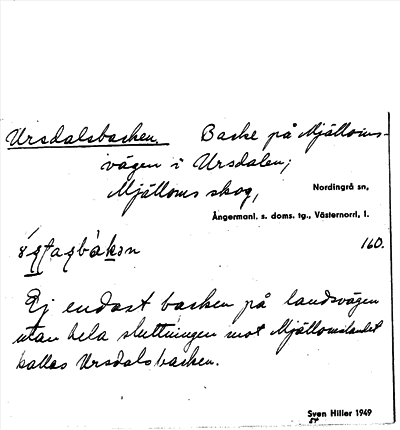 Ursdalsbacken. Backe på Mjälloms-
vägen i Ursdalen;
Mjälloms skog,
Nordingrå sn,
Ångermanl. s. doms. tg., Västernorrl. l.
160.
Ej endast backen på landsvägen
utan hela sluttningen mot Mjällomslandet
kallas Ursdalsbacken.
Sven Hiller 1949